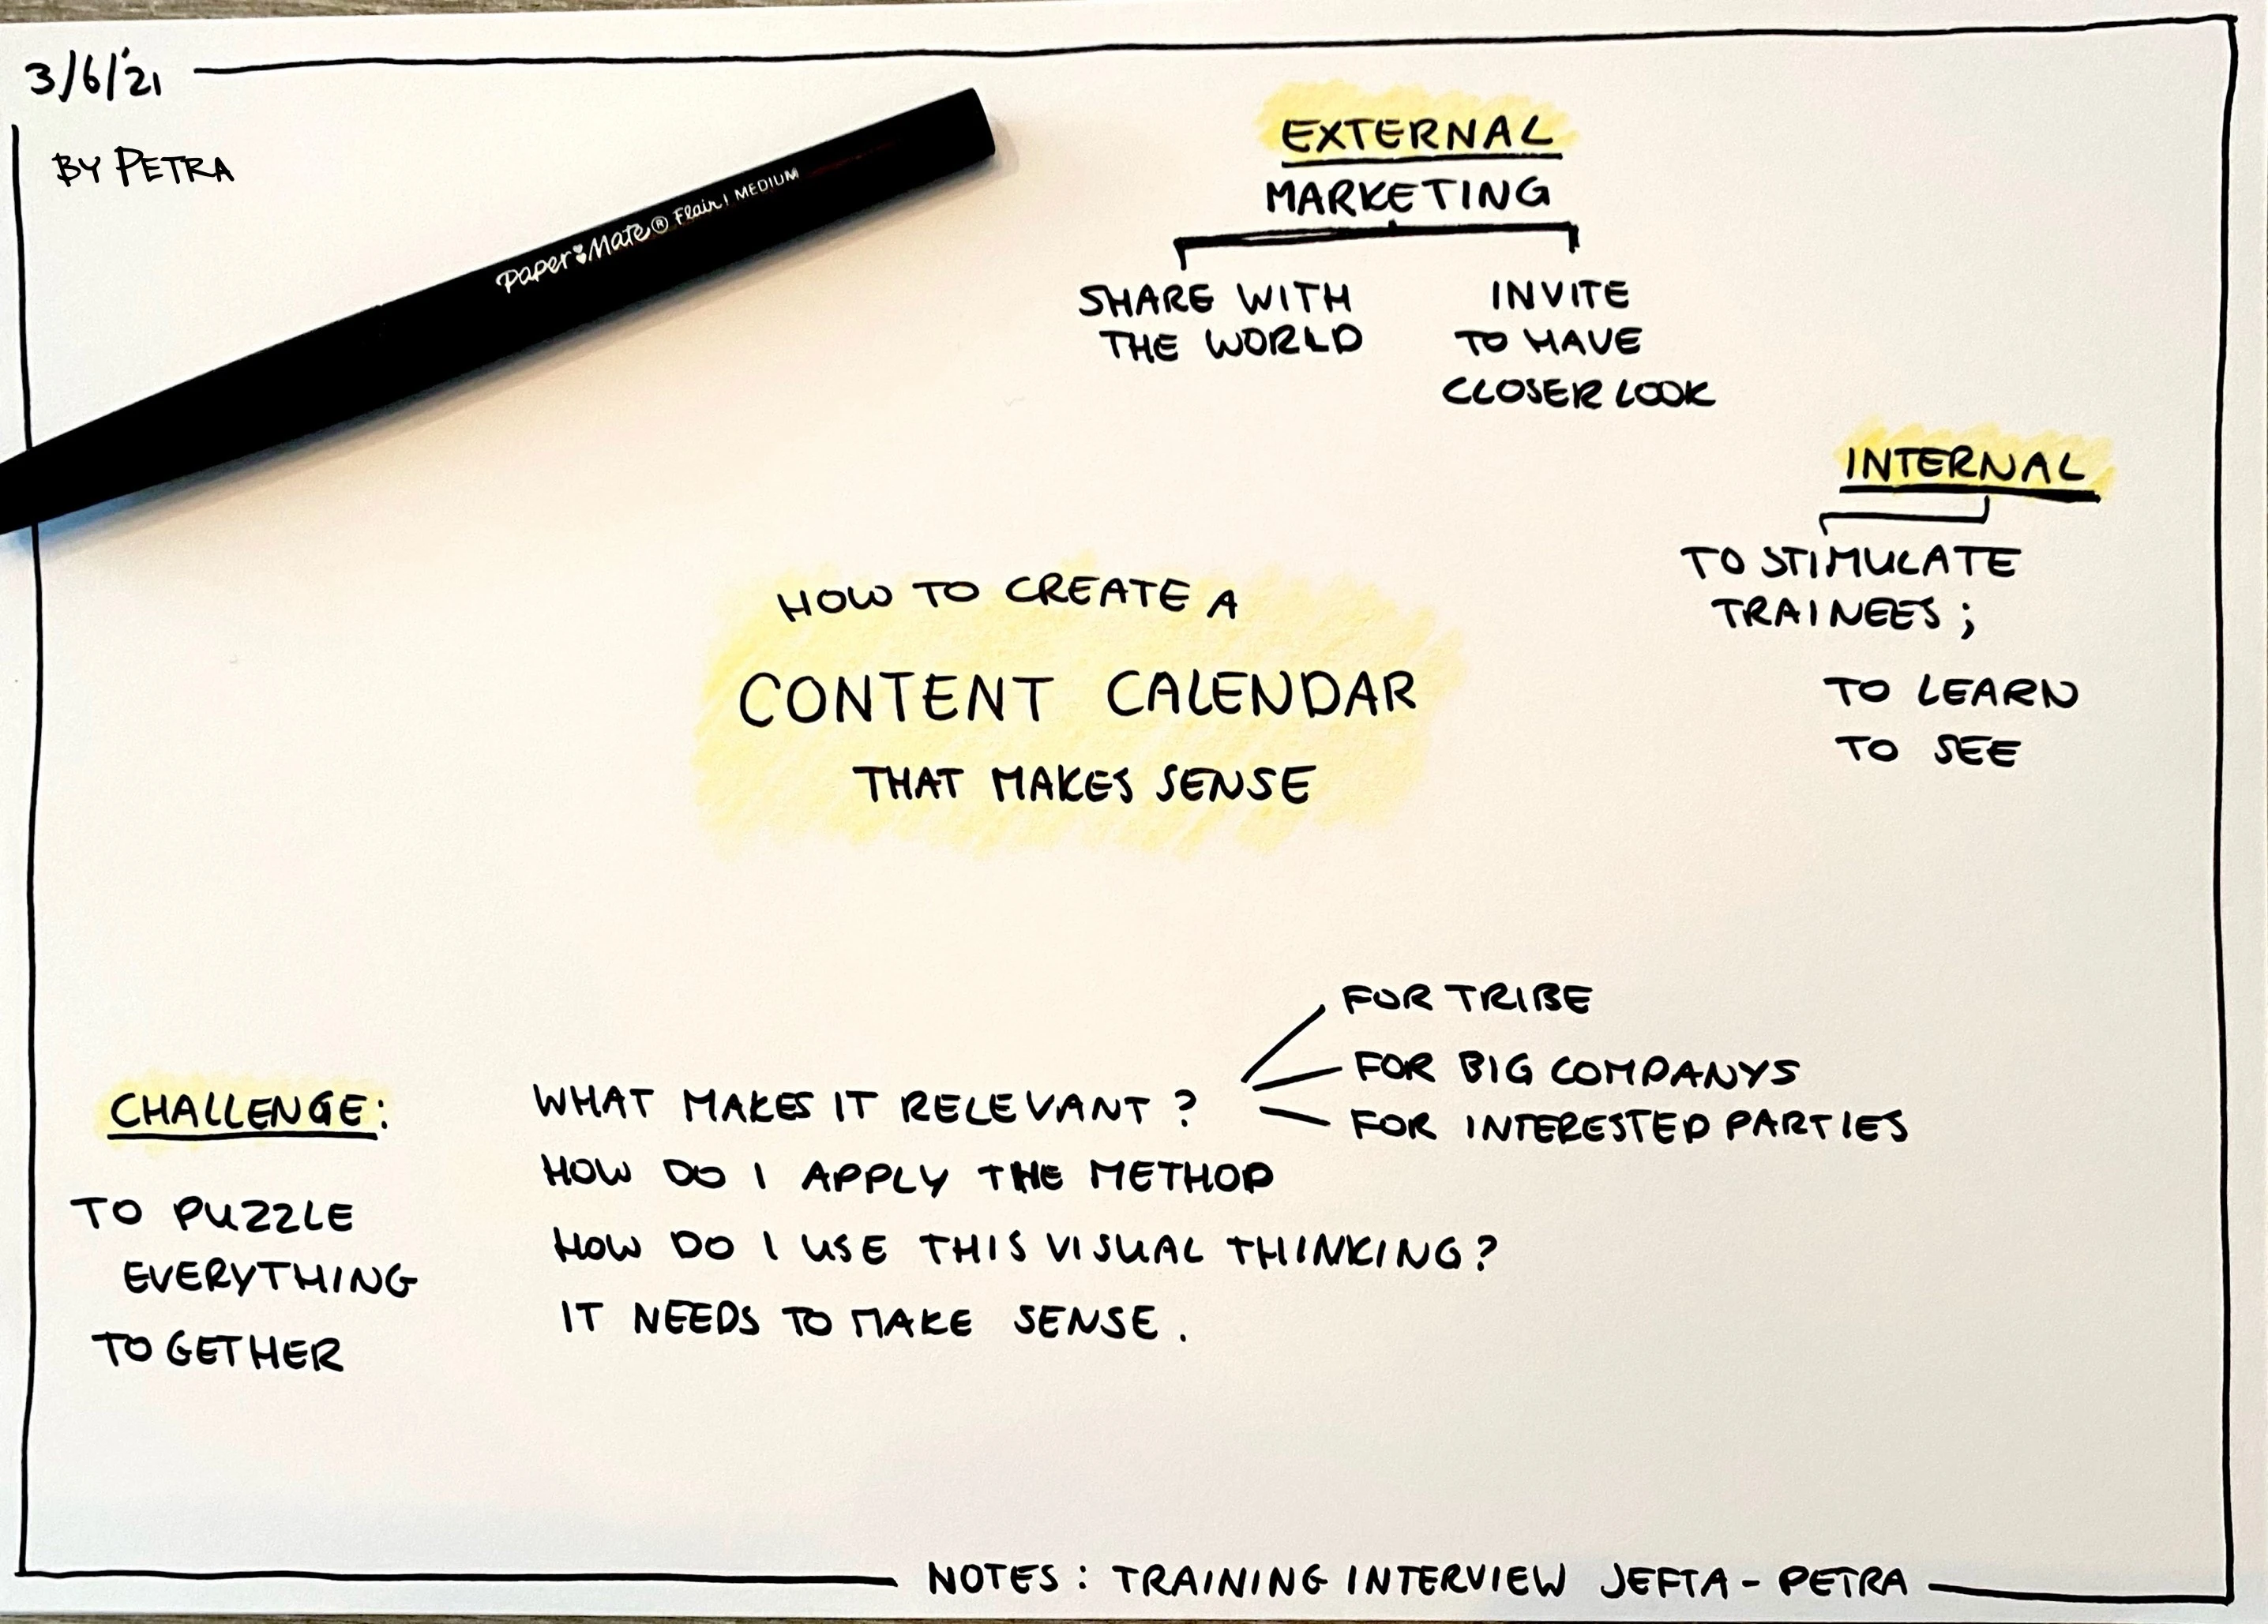 3/6/'21
BY PETRA
Paper Mate® Flair! MEDIUM
EXTERNAL
MARKETING
SHARE WITH
THE WORLD
INVITE
TO HAVE
CLOSER LOOK
INTERNAL
TO STIMULATE
TRAINEES;
TO LEARN
TO SEE
HOW TO CREATE A
CONTENT CALENDAR
THAT MAKES SENSE
CHALLENGE:
TO PUZZLE
EVERYTHING
TO GETHER
WHAT MAKES IT RELEVANT?
FOR TRIBE
FOR BIG COMPANYS
FOR INTERESTED PARTIES
HOW DO I APPLY THE METHOD
HOW DO I USE THIS VISUAL THINKING?
IT NEEDS TO MAKE SENSE.
NOTES: TRAINING INTERVIEW JEFTA - PETRA